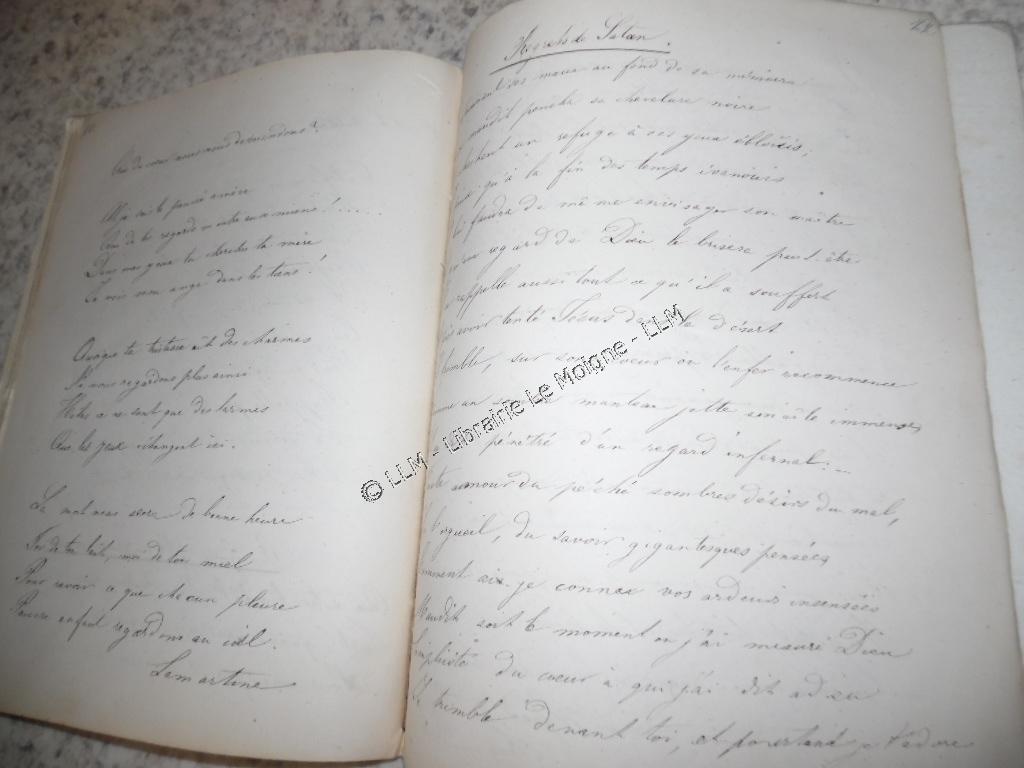 que nous nous demandons?
la pensée amère
regard
Dieu me garde tu cherches ta mère
Je vois mon ange dans les tiens!
Quoique ta tristesse ait des charmes
Ne nous regardons plus ainsi
Hélas ce ne sont que des larmes
Que les yeux échangent ici.
Le mal nous sèvre de bonne heure
Toi de ton lait, moi de ton miel
Pour revoir ce que chacun pleure
Pauvre enfant regardons au ciel.
Lamartine
Regrets de Satan.
maux au fond de sa mémoire
maudit pencha sa chevelure noire
un refuge à ses yeux éblouis,
qu'à la fin des temps évanouis
faudra de même envisager son maître
regard de Dieu le brisera peut-être
rappelle aussi tout ce qu'il a souffert
avoir tenté Jésus dans le désert
tremble, sur son coeur où l'enfer recommence
un manteau jette son aile immense,
pénétré d'un regard infernal. _
amour du péché sombres désirs du mal,
orgueil, du savoir gigantesques pensées
Comment ai-je connu vos ardeurs insensées
Maudit soit le moment où j'ai mesuré Dieu
Simplicité du coeur à qui j'ai dit adieu
Je tremble devant toi, et pourtant je t'adore
© LLM - Librairie Le Moigne - LLM